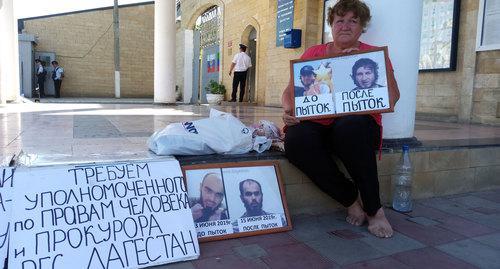 ДО
ПЫТОК
ПОСЛЕ
ПЫТОК
ТРЕБУЕМ
УПОЛНОМОЧЕННОГО
ПО ПРАВАМ ЧЕЛОВЕКА
И ПРОКУРОРА
РЕС. ДАГЕСТАН
ИЮНЯ 2019г.
ДО ПЫТОК
15 ИЮНЯ 2019г.
ПОСЛЕ ПЫТОК